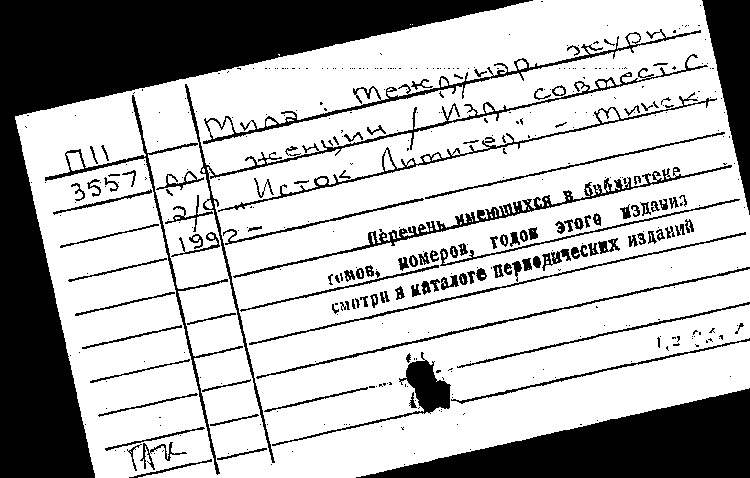 Мила : Междунар. журн.
П11 для женщин / Изд. совмест. с
3557 а/о „Исток Лимитед". – Минск,
1992 –
Перечень имеющихся в библиотеке
томов, номеров, годов этого издания
смотри в каталоге периодических изданий
ГАК